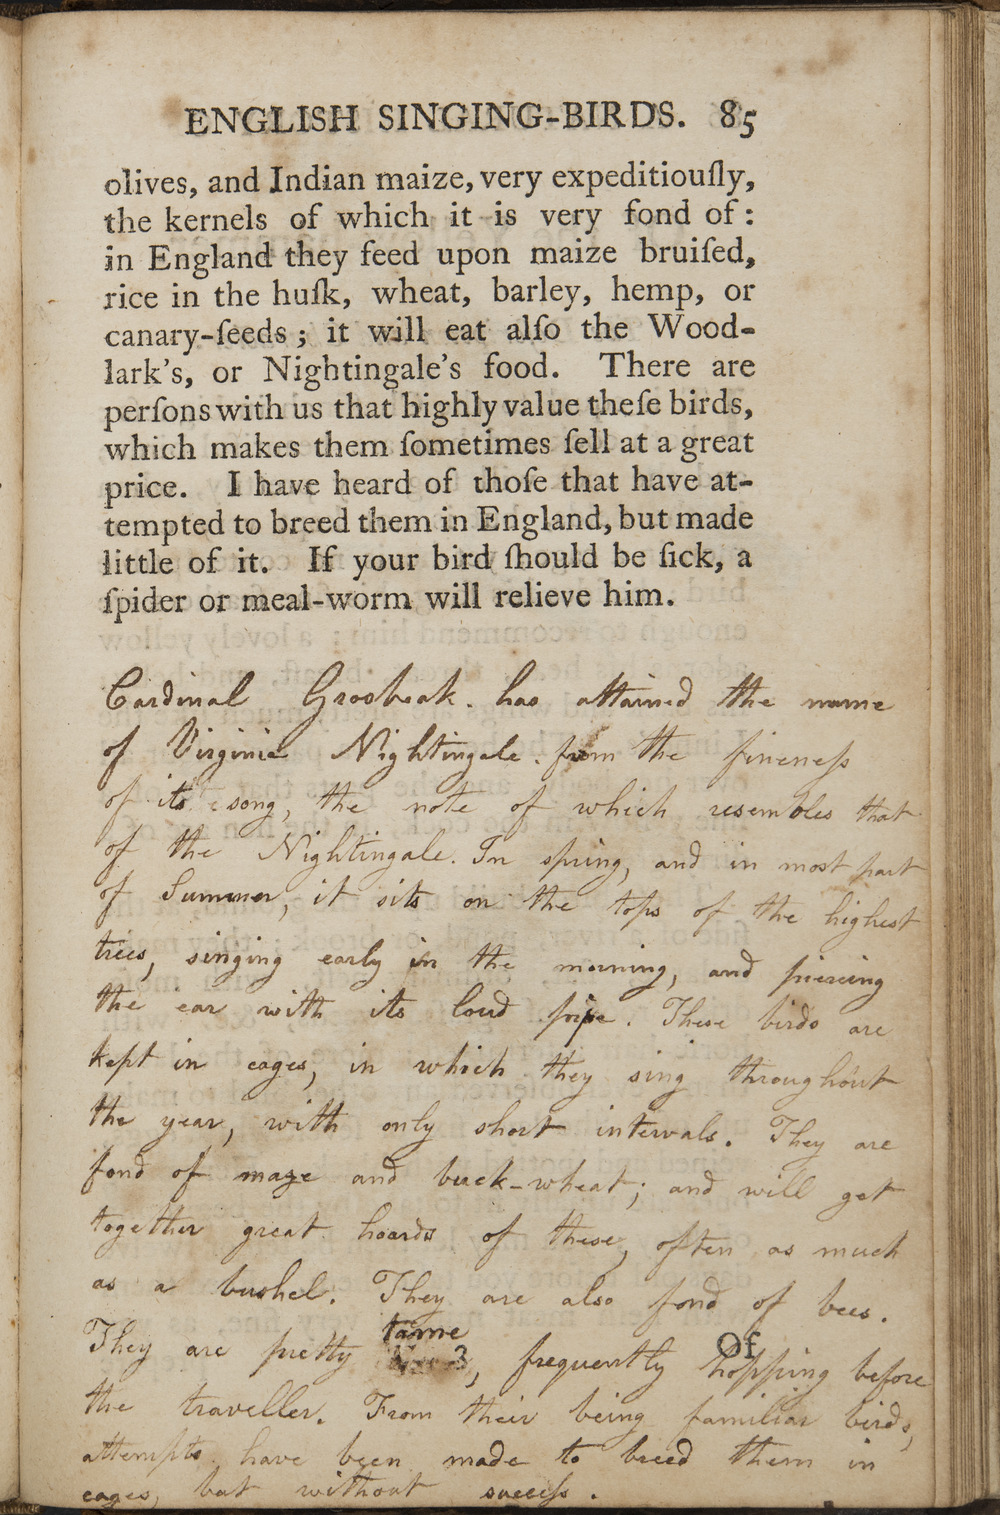 ENGLISH SINGING-BIRDS. 85
olives, and Indian maize, very expeditiouſly,
the kernels of which it is very fond of:
in England they feed upon maize bruiſed,
rice in the huſk, wheat, barley, hemp, or
canary-ſeeds; it will eat alſo the Wood-
lark's, or Nightingale's food. There are
perſons with us that highly value theſe birds,
which makes them ſometimes ſell at a great
price. I have heard of thoſe that have at-
tempted to breed them in England, but made
little of it. If your bird ſhould be ſick, a
ſpider or meal-worm will relieve him.
Cardinal Grosbeak. has attained the name
of Virginia Nightingale. from the fineneſs
of its song, the note of which resembles that
of the Nightingale. In spring, and in most part
of Summer, it sits on the tops of the highest
trees, singing early in the morning, and piercing
the ear with its loud pipe. These birds are
kept in cages, in which they sing throughout
the year, with only short intervals. They are
fond of maze and buck-wheat; and will get
together great hoards of these, often as much
as a bushel. They are also fond of bees.
tame
Of
They are pretty 3, frequently hopping before
the traveller. From their being familiar birds,
attempts have been made to breed them in
cages, but without succeſs.